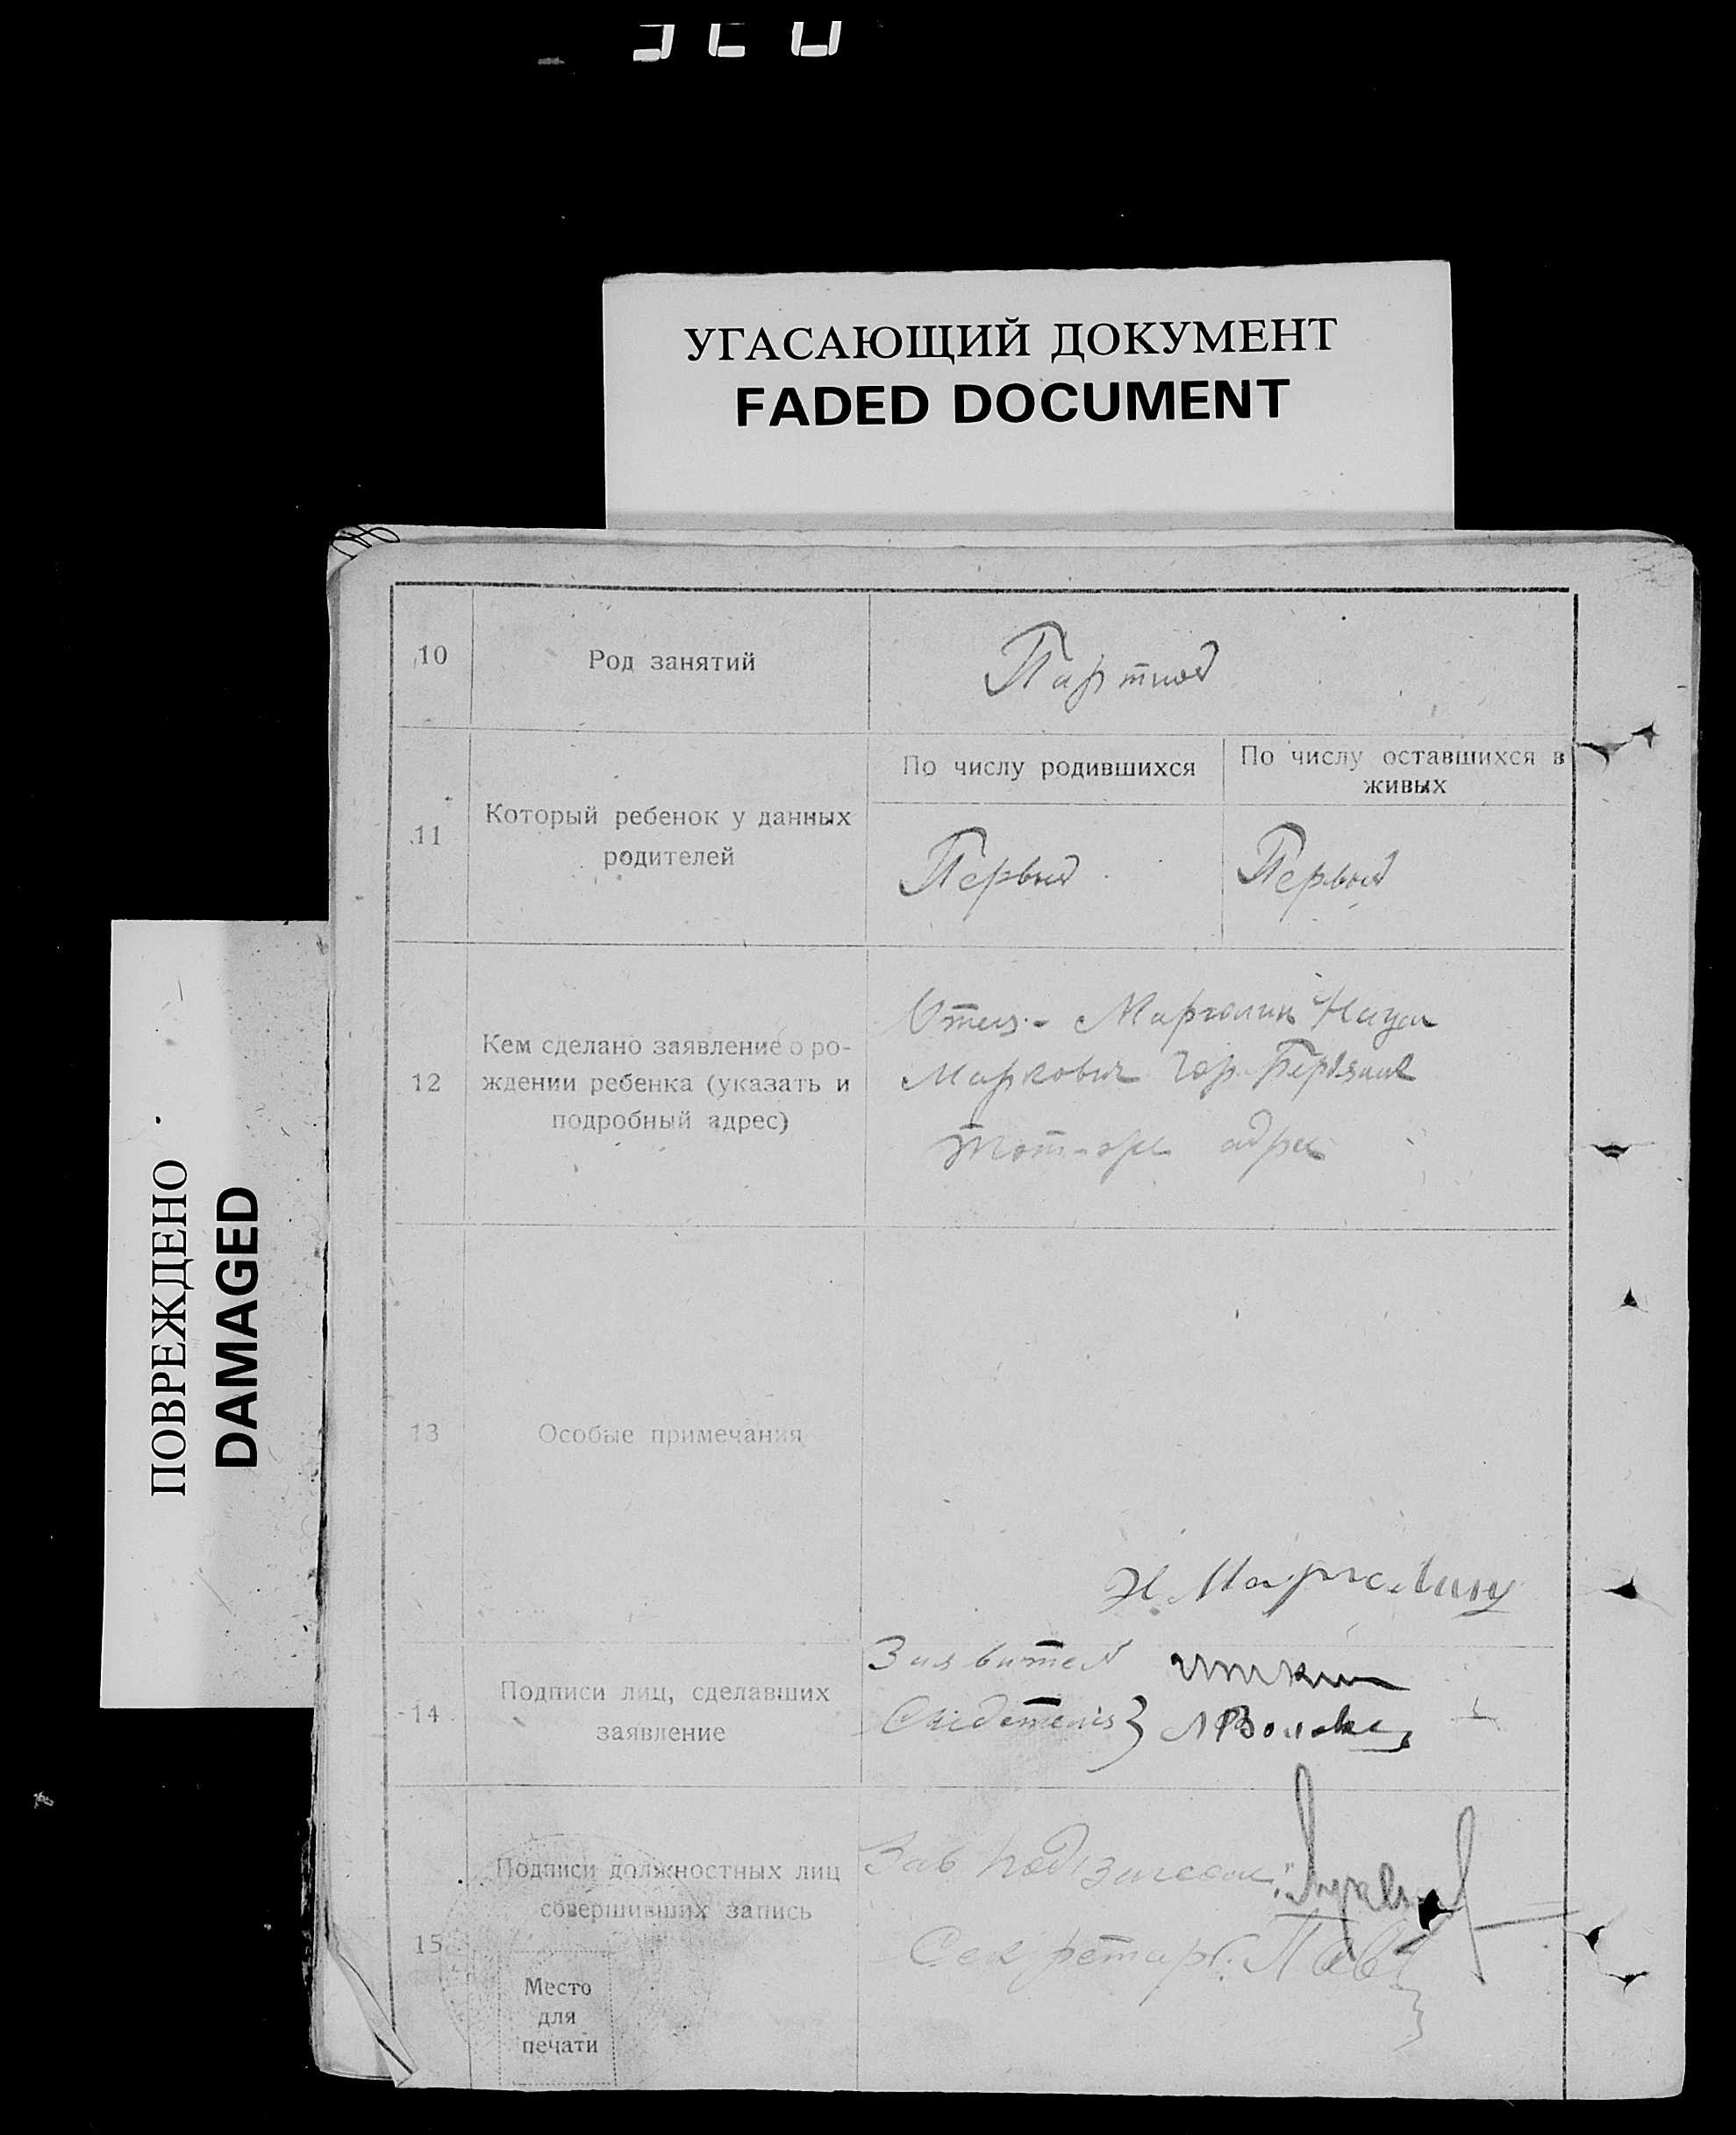 УГАСАЮЩИЙ ДОКУМЕНТ
FADED DOCUMENT
ПОВРЕЖДЕНО
DAMAGED
10
Род занятий
Портной
11
Который ребенок у данных
родителей
По числу родившихся
По числу оставшихся в
живых
Первый
Первый
12
Кем сделано заявление о ро-
ждении ребенка (указать и
подробный адрес)
Отец - Марголин
Маркович гор.
тот-же адрес
13
Особые примечания
Н. Марголин
14
Подписи лиц, сделавших
заявление
Заявител
Свидетели }
15
Подписи должностных лиц
совершивших запись
Место
для
печати
Зав
Секретарь: